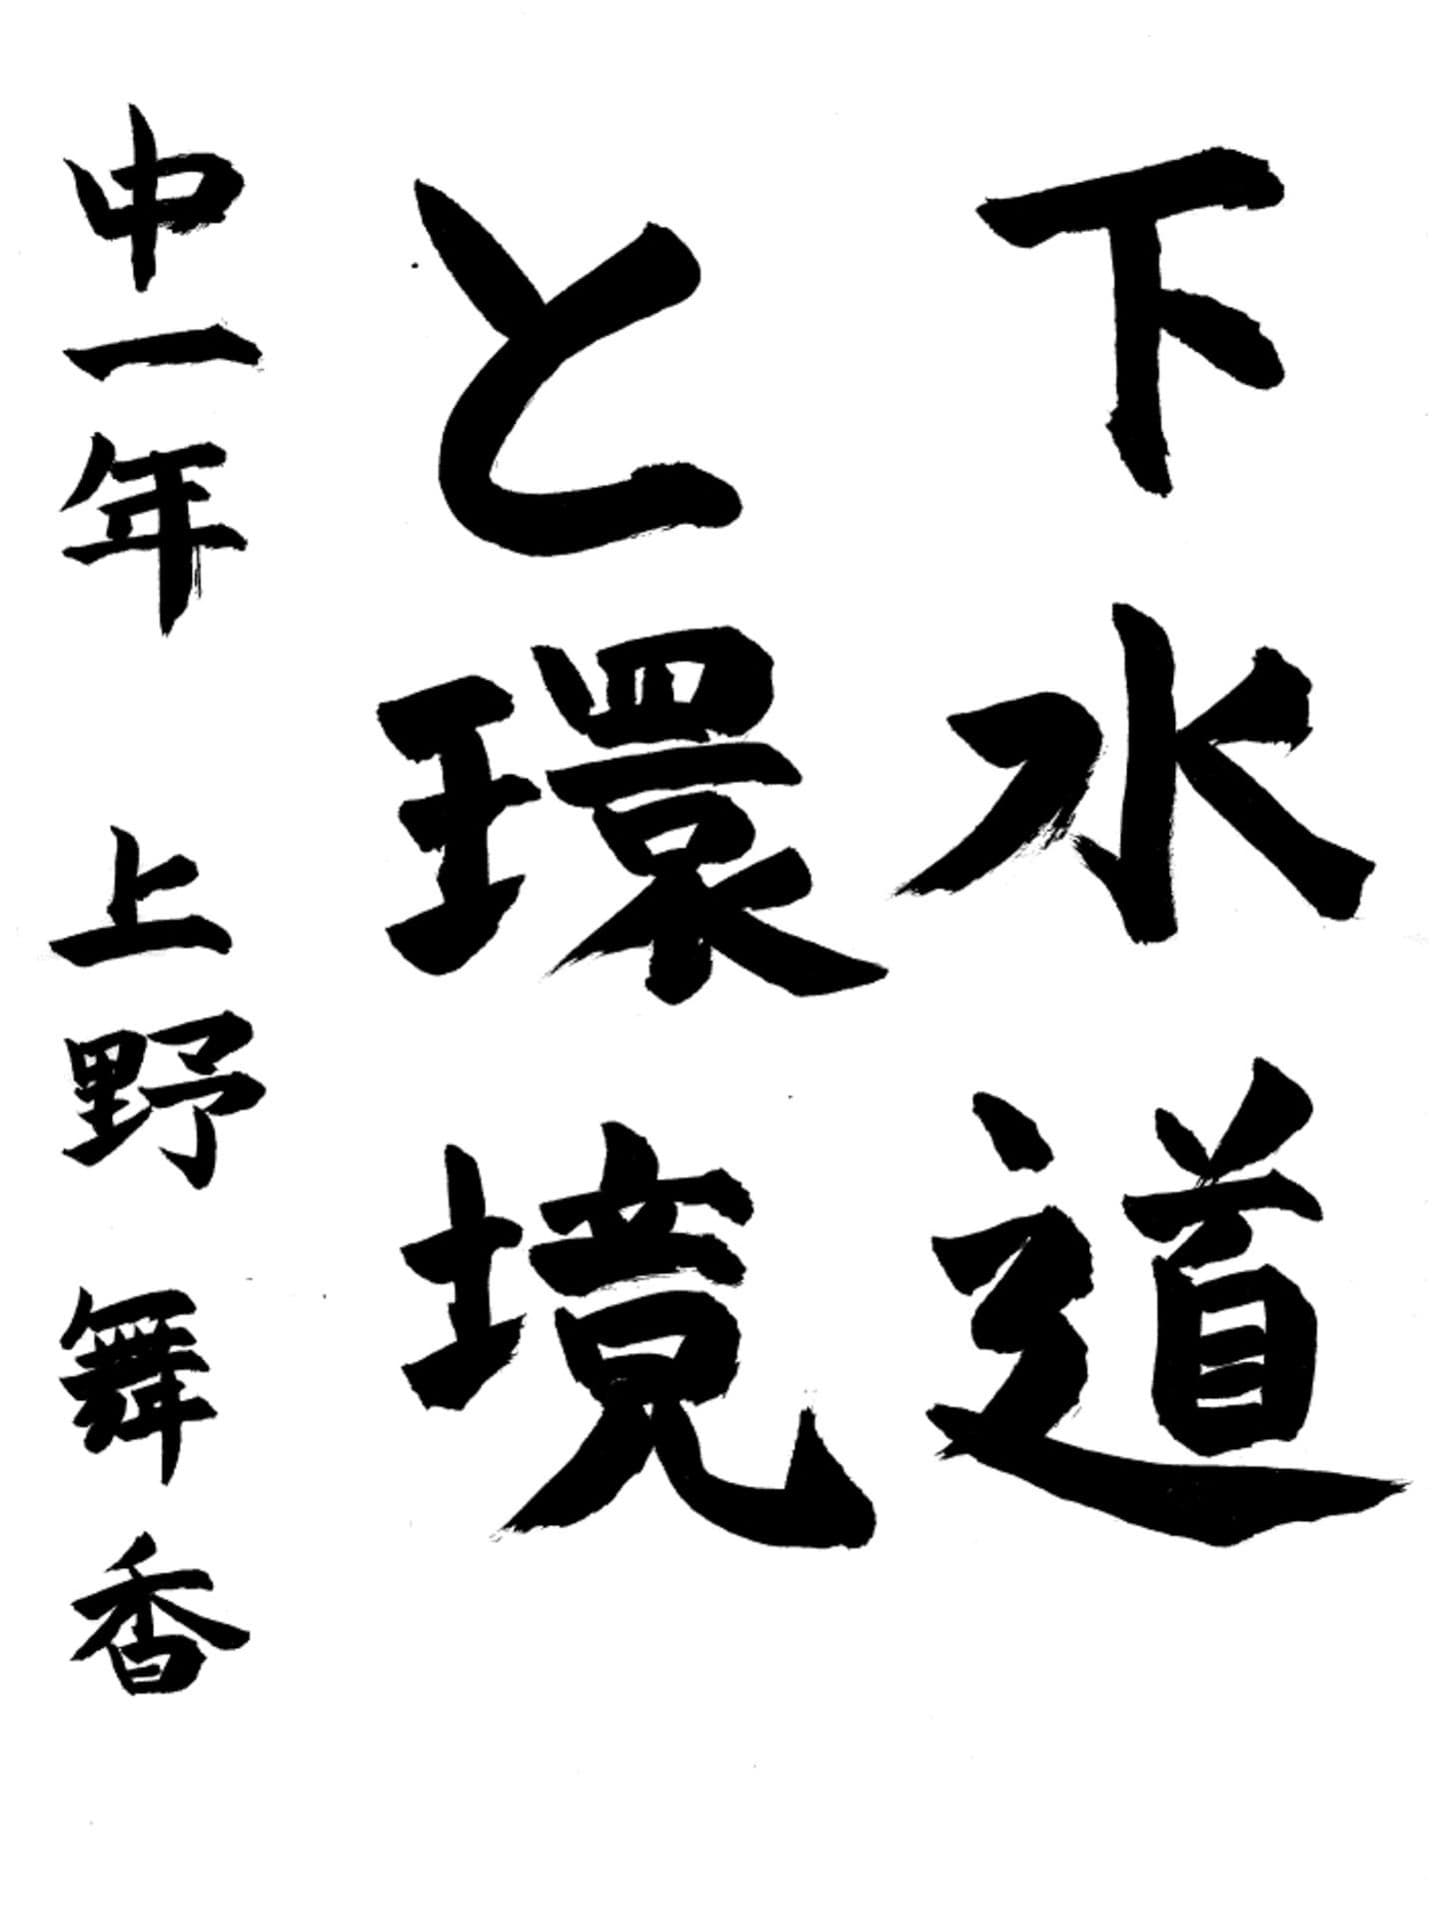 下水道
と環境
中一年 上野 舞香